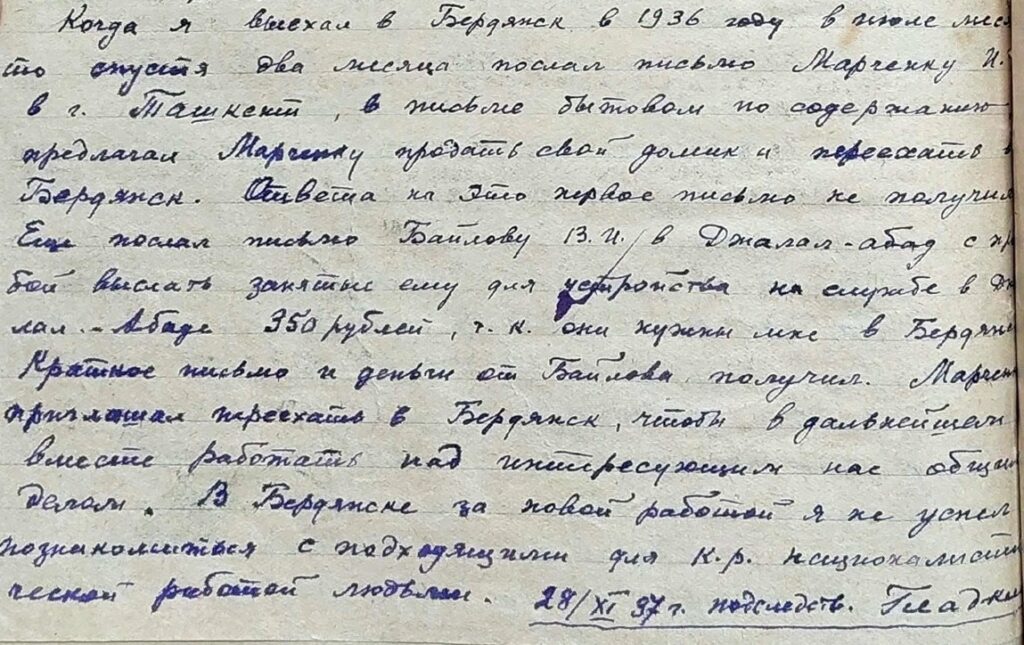 Когда я выехал в Бердянск в 1936 году в июле меся
то спустя два месяца послал письмо Марченку И.
в г. Ташкент, в письме бытовом по содержанию
предлагал Марченку продать свой домик и переехать в
Бердянск. Ответа на это первое письмо не получил
Еще послал письмо Байлову В. И. в Джалал-абад с пр
бой выслать занятые ему для устройства на службе в Дж
лал-Абаде 350 рублей, т. к. они нужны мне в Бердянс
Краткое письмо и деньги от Байлова получил. Марчен
приглашал переехать в Бердянск, чтобы в дальнейшем
вместе работать над интересующим нас общим
делом. В Бердянске за новой работой я не успел
познакомиться с подходящими для к.р. националисти
ческой работой людьми. 28/XI 37 г. подследств. Гладк